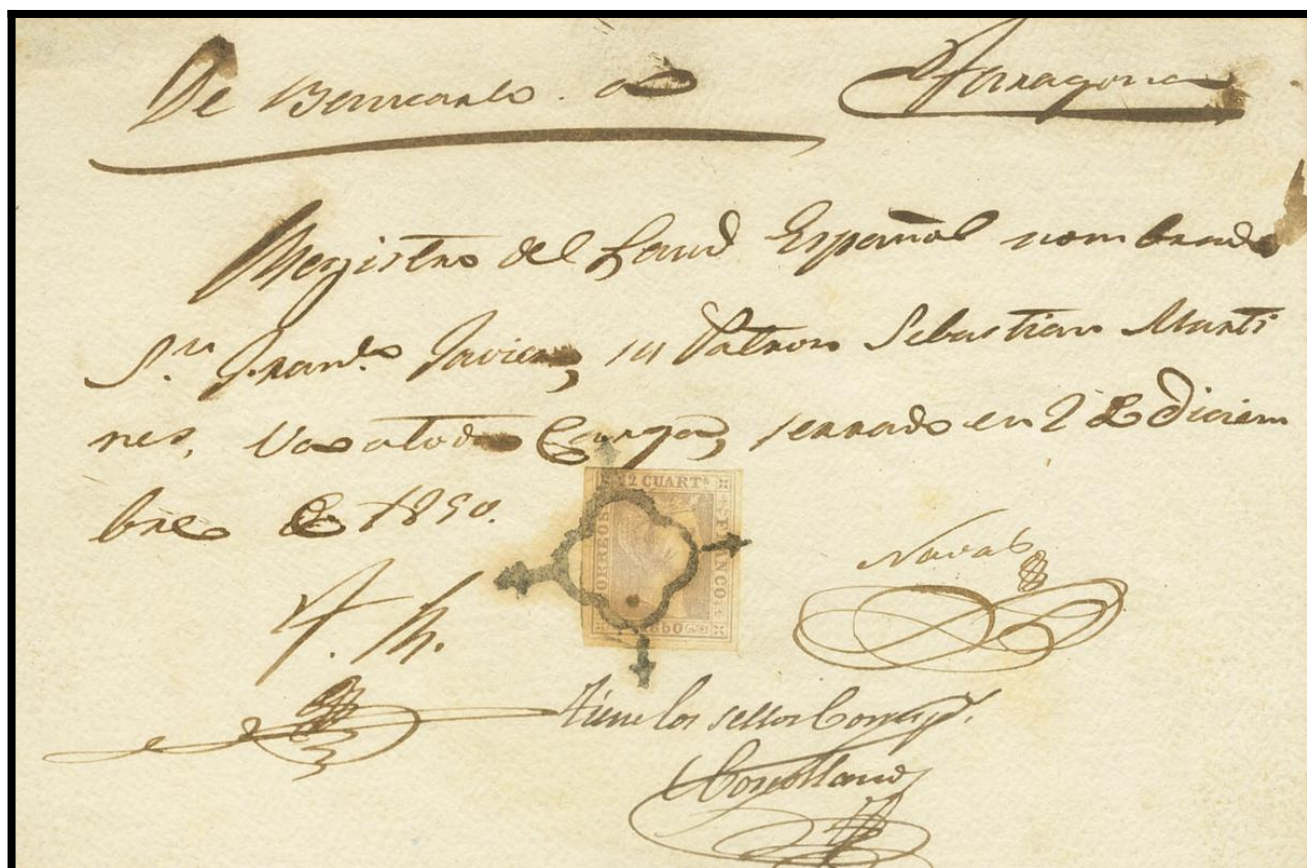 De Benicarlo a Tarragona
Registro del Laud Español nombrado
Sn. Franco. Javier, su Patron Sebastian Marti
nes, Va a toda Carga, serrado en 2 de Diciem
bre de 1850.
12 CUARTs
CORREOS
FRANCO
1850
Naval
F. M.
tiene los sellos